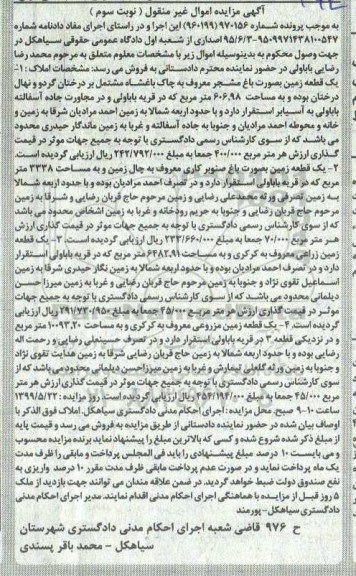 آگهی مزایده اموال غیر منقول ( نوبت سوم )
به موجب پرونده شماره ۹۷۰۱۵۶ (۹۶۰۱۹۹) این اجرا و در راستای اجرای مفاد دادنامه شماره
۹۵۰۹۹۷۱۴۳۸۱۰۰۵۴۷-۹۵/۶/۳ اصداری از شعبه اول دادگاه عمومی حقوقی سیاهکل در
جهت وصول محکوم به بدینوسیله اموال زیر با مشخصات معلوم متعلق به مرحوم محمد رضا
رضایی باباولی در حضور نماینده محترم دادستانی به فروش می رسد: مشخصات املاک : ۱-
یک قطعه زمین بصورت باغ مشجر معروف به چاک باغشاه مشتمل بر درختان گردو و نهال
درختان بوده و به مساحت ۶۰۶,۹۸ متر مربع که در قریه باباولی و در مجاورت جاده آسفالته
باباولی به آسیابر استقرار دارد و با حدود اربعه شمالا به زمین احمد مرادیان شرقا به زمین و
خانه و محوطه احمد مرادیان و جنوبا به جاده آسفالته و غربا به زمین ماندگار حیدری محدود
می باشد که از سوی کارشناس رسمی دادگستری با توجه به جمیع جهات موثر در قیمت
گذاری ارزش هر متر مربع ۴۰۰/۰۰۰ جمعا به مبلغ ۲۴۲/۷۹۲/۰۰۰ ریال ارزیابی گردیده است.
۲- یک قطعه زمین بصورت باغ صنوبر کاری معروف به چال زمین و به مساحت ۳۳۳۸ متر
مربع که در قریه باباولی استقرار دارد و در تصرف احمد مرادیان بوده و با حدود اربعه شمالا
به زمین تصرفی ورثه محمدعلی رضایی و زمین مرحوم حاج قربان رضایی و شرقا به زمین
مرحوم حاج قربان رضایی و جنوبا به حریم رودخانه و غربا به زمین اشخاص محدود می باشد
که از سوی کارشناس رسمی دادگستری با توجه به جمیع جهات موثر در قیمت گذاری ارزش
هر متر مربع ۷۰/۰۰۰ جمعا به مبلغ ۲۳۳/۶۶۰/۰۰۰ ریال ارزیابی گردیده است. ۳- یک قطعه
زمین زراعی معروف به کرکری و به مساحت ۶۴۸۲,۹۱ متر مربع که در قریه باباولی استقرار
دارد و در تصرف احمد مرادیان بوده و با حدود اربعه شمالا به زمین نگار حیدری شرقا به زمین
اسماعیل تقوی نژاد و جنوبا به زمین مرحوم حاج قربان رضایی و غربا به زمین میرزا حسن
دیلمانی محدود می باشد که از سوی کارشناس رسمی دادگستری با توجه به جمیع جهات
موثر در قیمت گذاری ارزش هر متر مربع ۴۵/۰۰۰ جمعا به مبلغ ۲۹۱/۷۳۰/۹۵۰ ریال ارزیابی
گردیده است. ۴- یک قطعه زمین مزروعی معروف به کرکری و به مساحت ۱۰۰۹۳,۲۰ متر مربع
و در نزدیکی قطعه ۳ در قریه باباولی استقرار دارد و در تصرف حسینعلی رضایی و رحمت اله
رضایی بوده و با حدود اربعه شمالا به زمین حاج قربان رضایی شرقا به زمین هدایت تقوی نژاد
و جنوبا به زمین ورثه گلعلی تیمارش و غربا به زمین میرزاحسن دیلمانی محدود می باشد که از
سوی کارشناس رسمی دادگستری با توجه به جمیع جهات موثر در قیمت گذاری ارزش هر متر
مربع ۴۵/۰۰۰ جمعا به مبلغ ۴۵۴/۱۹۴/۰۰۰ ریال ارزیابی گردیده است. روز مزایده : ۱۳۹۹/۵/۲۲
ساعت ۱۰-۹ صبح. محل مزایده: اجرای احکام مدنی دادگستری سیاهکل. املاک فوق الذکر با
اوصاف بیان شده در حضور نماینده دادستانی از طریق مزایده به فروش می رسد و قیمت پایه
از مبلغ ذکر شده شروع شده و کسی که بالاترین مبلغ را پیشنهاد نماید برنده مزایده محسوب
و می بایست ۱۰ درصد مبلغ پیشنهادی را باید فی المجلس پرداخت و مابقی را ظرف مدت
یک ماه پرداخت نماید و در صورت عدم پرداخت مابقی ظرف مدت مقرر ۱۰ درصد واریزی به
نفع صندوق دولت ضبط خواهد گردید. در ضمن علاقه مندان می توانند جهت بازدید از ملک
۵ روز قبل از مزایده با هماهنگی اجرای احکام مدنی اقدام نمایند. مدیر اجرای احکام مدنی
دادگستری سیاهکل-پورمند
ح ۹۷۶ قاضی شعبه اجرای احکام مدنی دادگستری شهرستان
سیاهکل - محمد باقر پسندی